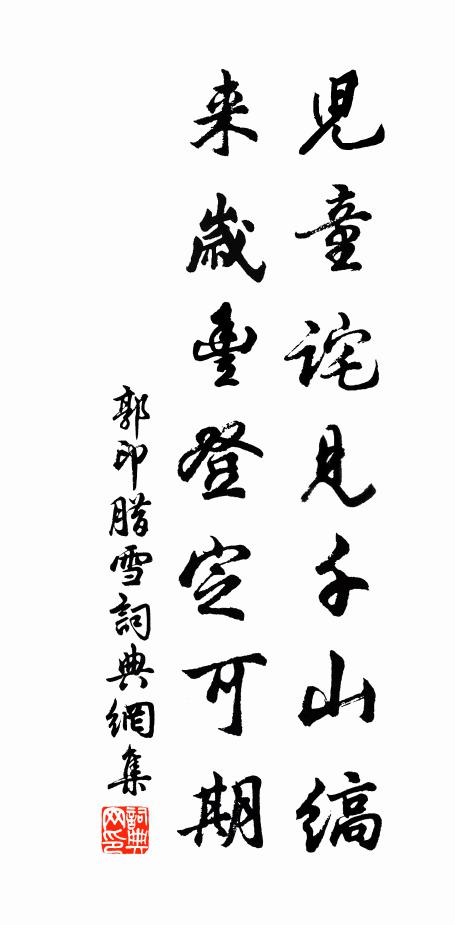 兒童詫見千山縞
来歲豐登定可期
郭印腊雪詞典網集
詞典网印